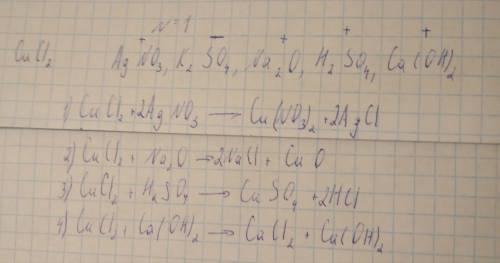 N=1
CuCl₂ AgNO₃, K₂SO₄, Na₂O, H₂SO₄, Ca(OH)₂
+ − + + +
1) CuCl₂ + 2AgNO₃ → Cu(NO₃)₂ + 2AgCl
2) CuCl₂ + Na₂O → 2NaCl + CuO
3) CuCl₂ + H₂SO₄ → CuSO₄ + 2HCl
4) CuCl₂ + Ca(OH)₂ → CaCl₂ + Cu(OH)₂